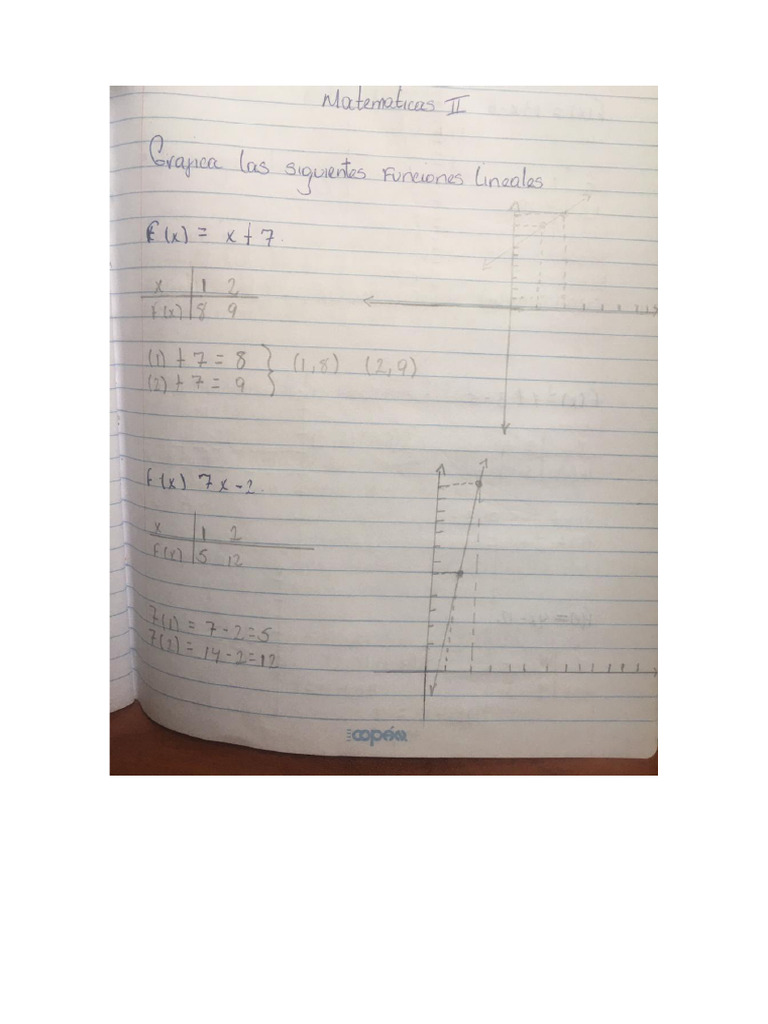 Matematicas II
Grafica las siguientes Funciones Lineales
F(x) = x + 7.
x | 1 2
F(x) | 8 9
(1) + 7 = 8 } (1,8) (2,9)
(2) + 7 = 9
F(x) 7x - 2.
x | 1 2
F(x) | 5 12
7(1) = 7 - 2 = 5
7(2) = 14 - 2 = 12
copéa